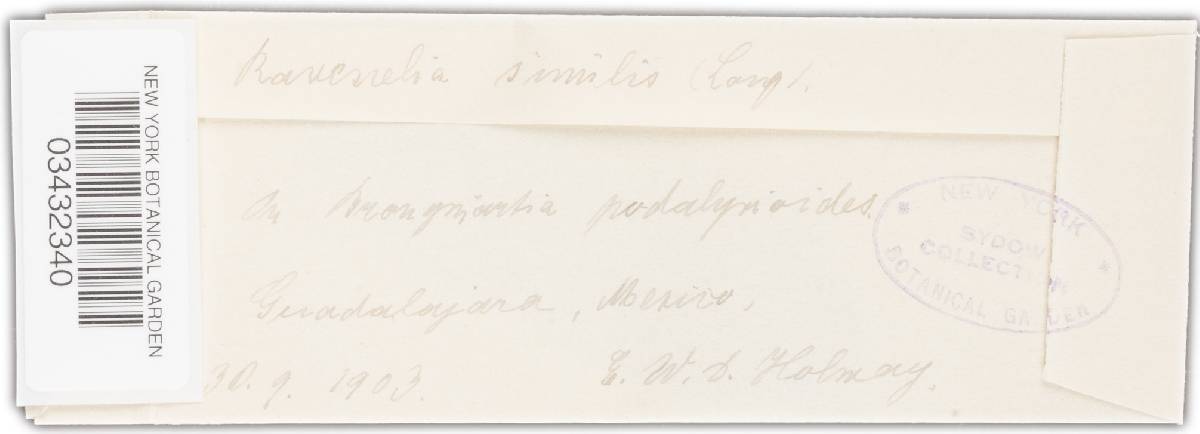 Ravenelia similis (Long).
On Brongniartia podalyrioides.
Guadalajara, Mexico,
30. 9. 1903.
E. W. D. Holway.
NEW YORK
SYDOW
COLLECTION
BOTANICAL GARDEN
NEW YORK BOTANICAL GARDEN
03432340